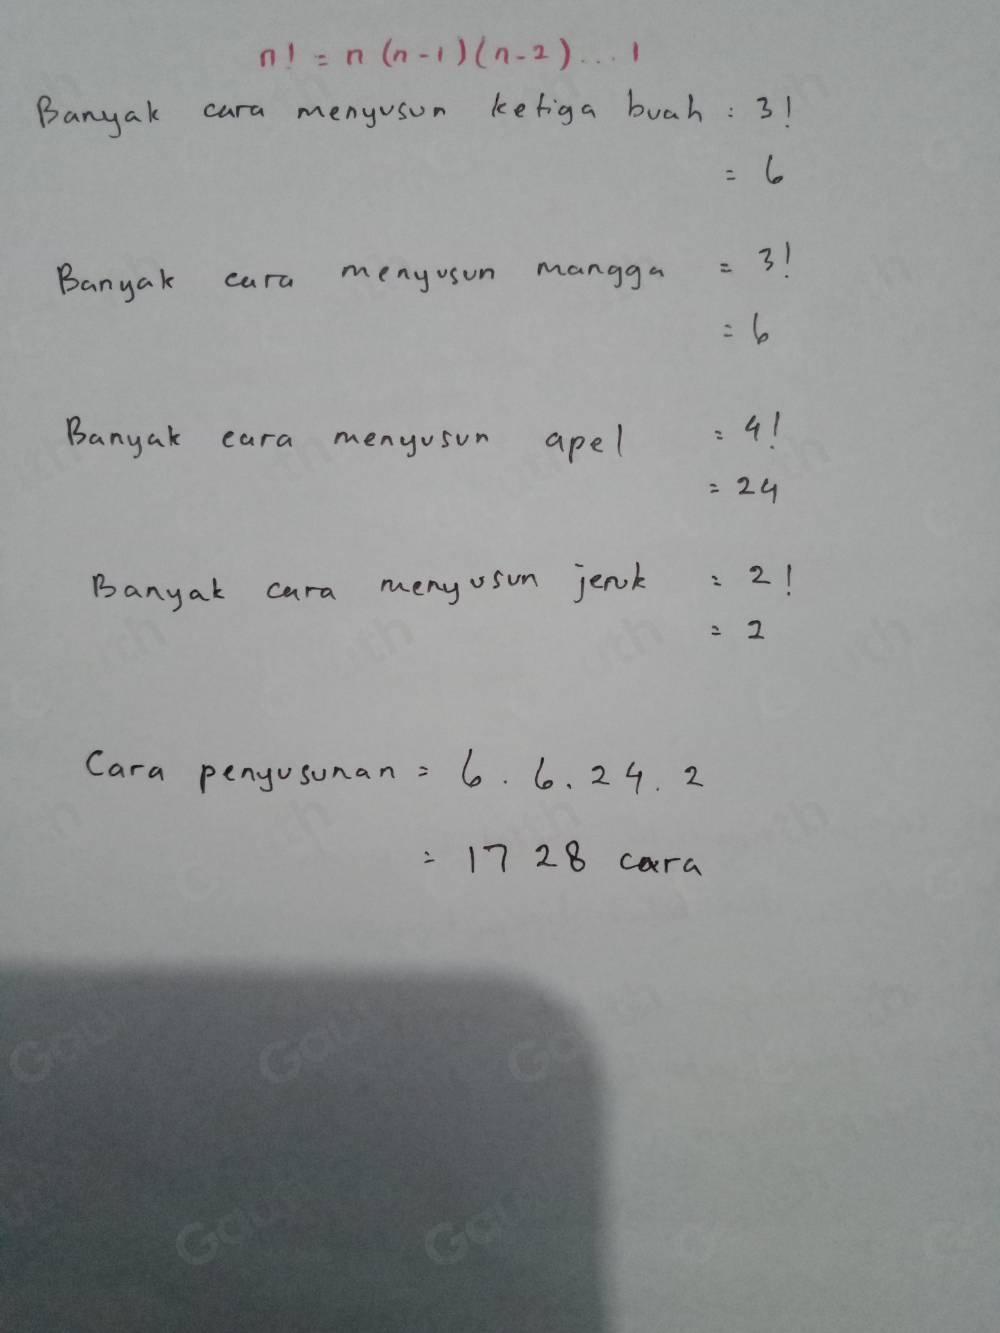 n! = n (n-1)(n-2)...1
Banyak cara menyusun ketiga buah : 3!
= 6
Banyak cara menyusun mangga = 3!
= 6
Banyak cara menyusun apel = 4!
= 24
Banyak cara menyusun jeruk = 2!
= 2
Cara penyusunan = 6 . 6 . 24 . 2
= 1728 cara